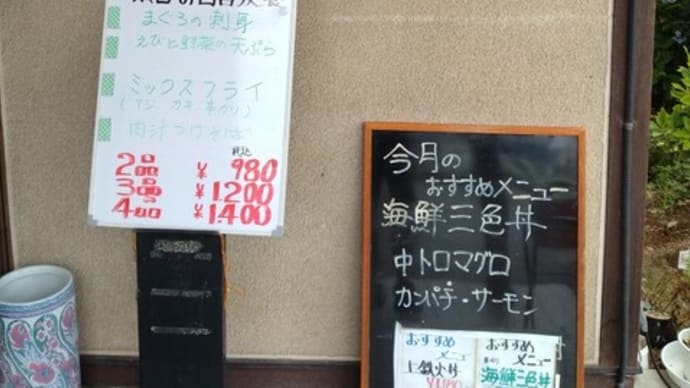 まぐろの刺身
えびと野菜の天ぷら
ミックスフライ
(アジ カキ 串カツ)
肉汁つけそば
税込
2品 ¥980
3品 ¥1,200
4品 ¥1,400
今月の
おすすめメニュー
海鮮三色丼
中トロマグロ
カンパチ・サーモン
おすすめ
メニュー
上鉄火丼
おすすめ
メニュー
海鮮三色丼